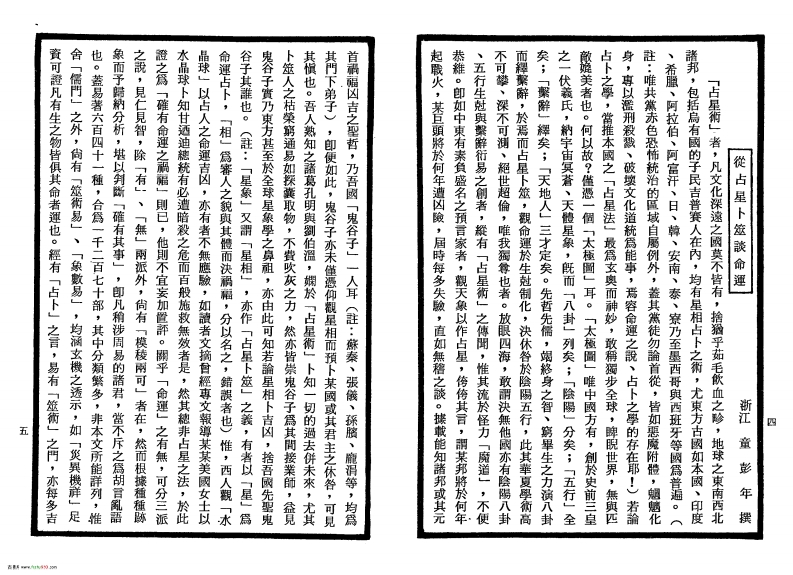 從占星卜筮談命運
浙江 童彭年撰
「占星術」者，凡文化深遠之國莫不皆有，捨猶乎茹毛飲血之畛，地球之東南西北
諸邦，包括烏有國的子民吉普賽人在內，均有星相占卜之術，尤東方古國如本國、印度
、希臘、阿拉伯、阿富汗、日、韓、安南、泰、寮乃至墨西哥與西班牙等國爲普遍。（
註：唯共黨赤色恐怖統治的區域自屬例外，蓋其黨徒勿論首從，皆如惡魔附體，魑魅化
身，專以濫刑殺戮、破壞文化道統爲能事，焉容命運之說、占卜之學的存在耶！）若論
占卜之學，當推本國之「占星法」最爲玄奧而神妙，敢稱獨步全球，睥睨世界，無與匹
敵媲美者也。何以故？僅憑一個「太極圖」耳。「太極圖」唯中國方有，創於史前三皇
之一伏羲氏，納宇宙冥蒼、天體星象，旣而「八卦」列矣；「陰陽」分矣；「五行」全
矣；「繫辭」繹矣；「天地人」三才定矣。先哲先儒，竭終身之智、窮畢生之力演八卦
而繹繫辭，於焉而占星卜筮，觀命運於生尅制化，決休咎於陰陽五行，此其華夏學術高
不可攀、深不可測，絕世超倫，唯我獨尊也者。放眼四海，敢謂決無他國亦有陰陽八卦
、五行生尅與繫辭衍易之創者，縱有「占星術」之傳聞，惟其流於怪力「魔道」，不便
恭維。卽如中東有素負盛名之預言家者，觀天象以作占星，侉侉其言，謂某邦將於何年
起戰火，某巨頭將於何年遭凶險，屆時每多失驗，直如無稽之談。據載能知諸邦或其元
四
首禍福凶吉之聖哲，乃吾國「鬼谷子」一人耳（註：蘇秦、張儀、孫臏、龐涓等，均爲
其門下弟子），卽便如此，鬼谷子亦未僅憑仰觀星相而預卜某國或其君主之休咎，可見
其愼也。吾人熟知之諸葛孔明與劉伯溫，嫻於「占星術」卜知一切的過去併未來，尤其
卜筮人之枯榮窮通易如探囊取物，不費吹灰之力，然亦皆崇鬼谷子爲其間接業師，益見
鬼谷子實乃東方甚至於全球星象學之鼻祖，亦由此可知若論星相卜吉凶，捨吾國先聖鬼
谷子其誰也。（註：「星象」又謂「星相」，亦作「占星卜筮」之義，有者以「星」爲
命運占卜，「相」爲審人之貌與其體而決禍福，分以名之，錯誤者也）惟，西人觀「水
晶球」以占人之命運吉凶，亦有者不無應驗，如讀者文摘曾經專文報導某某美國女士以
水晶球卜知甘迺迪總統有必遭暗殺之危而百般施救無效者是，然其總非占星之法，於此
證之爲「確有命運之禍福」則已，他則不宜妄加置評。關乎「命運」之有無，可分三派
之說，見仁見智，除「有」、「無」兩派外，尙有「模稜兩可」者在，然而根據種種跡
象而予歸納分析，堪以判斷「確有其事」，卽凡稍涉周易的諸君，當不斥之爲胡言亂語
也。蓋易著六百四十一種，合爲一千二百七十部，其中分類繁多，非本文所能詳列，惟
舍「儒門」之外，尙有「筮術易」、「象數易」，均涵玄機之透示，如「災異機祥」足
資可證凡有生之物皆俱其命者運也。經有「占卜」之言，易有「筮術」之門，亦每多吉
五
www.fozhu920.com